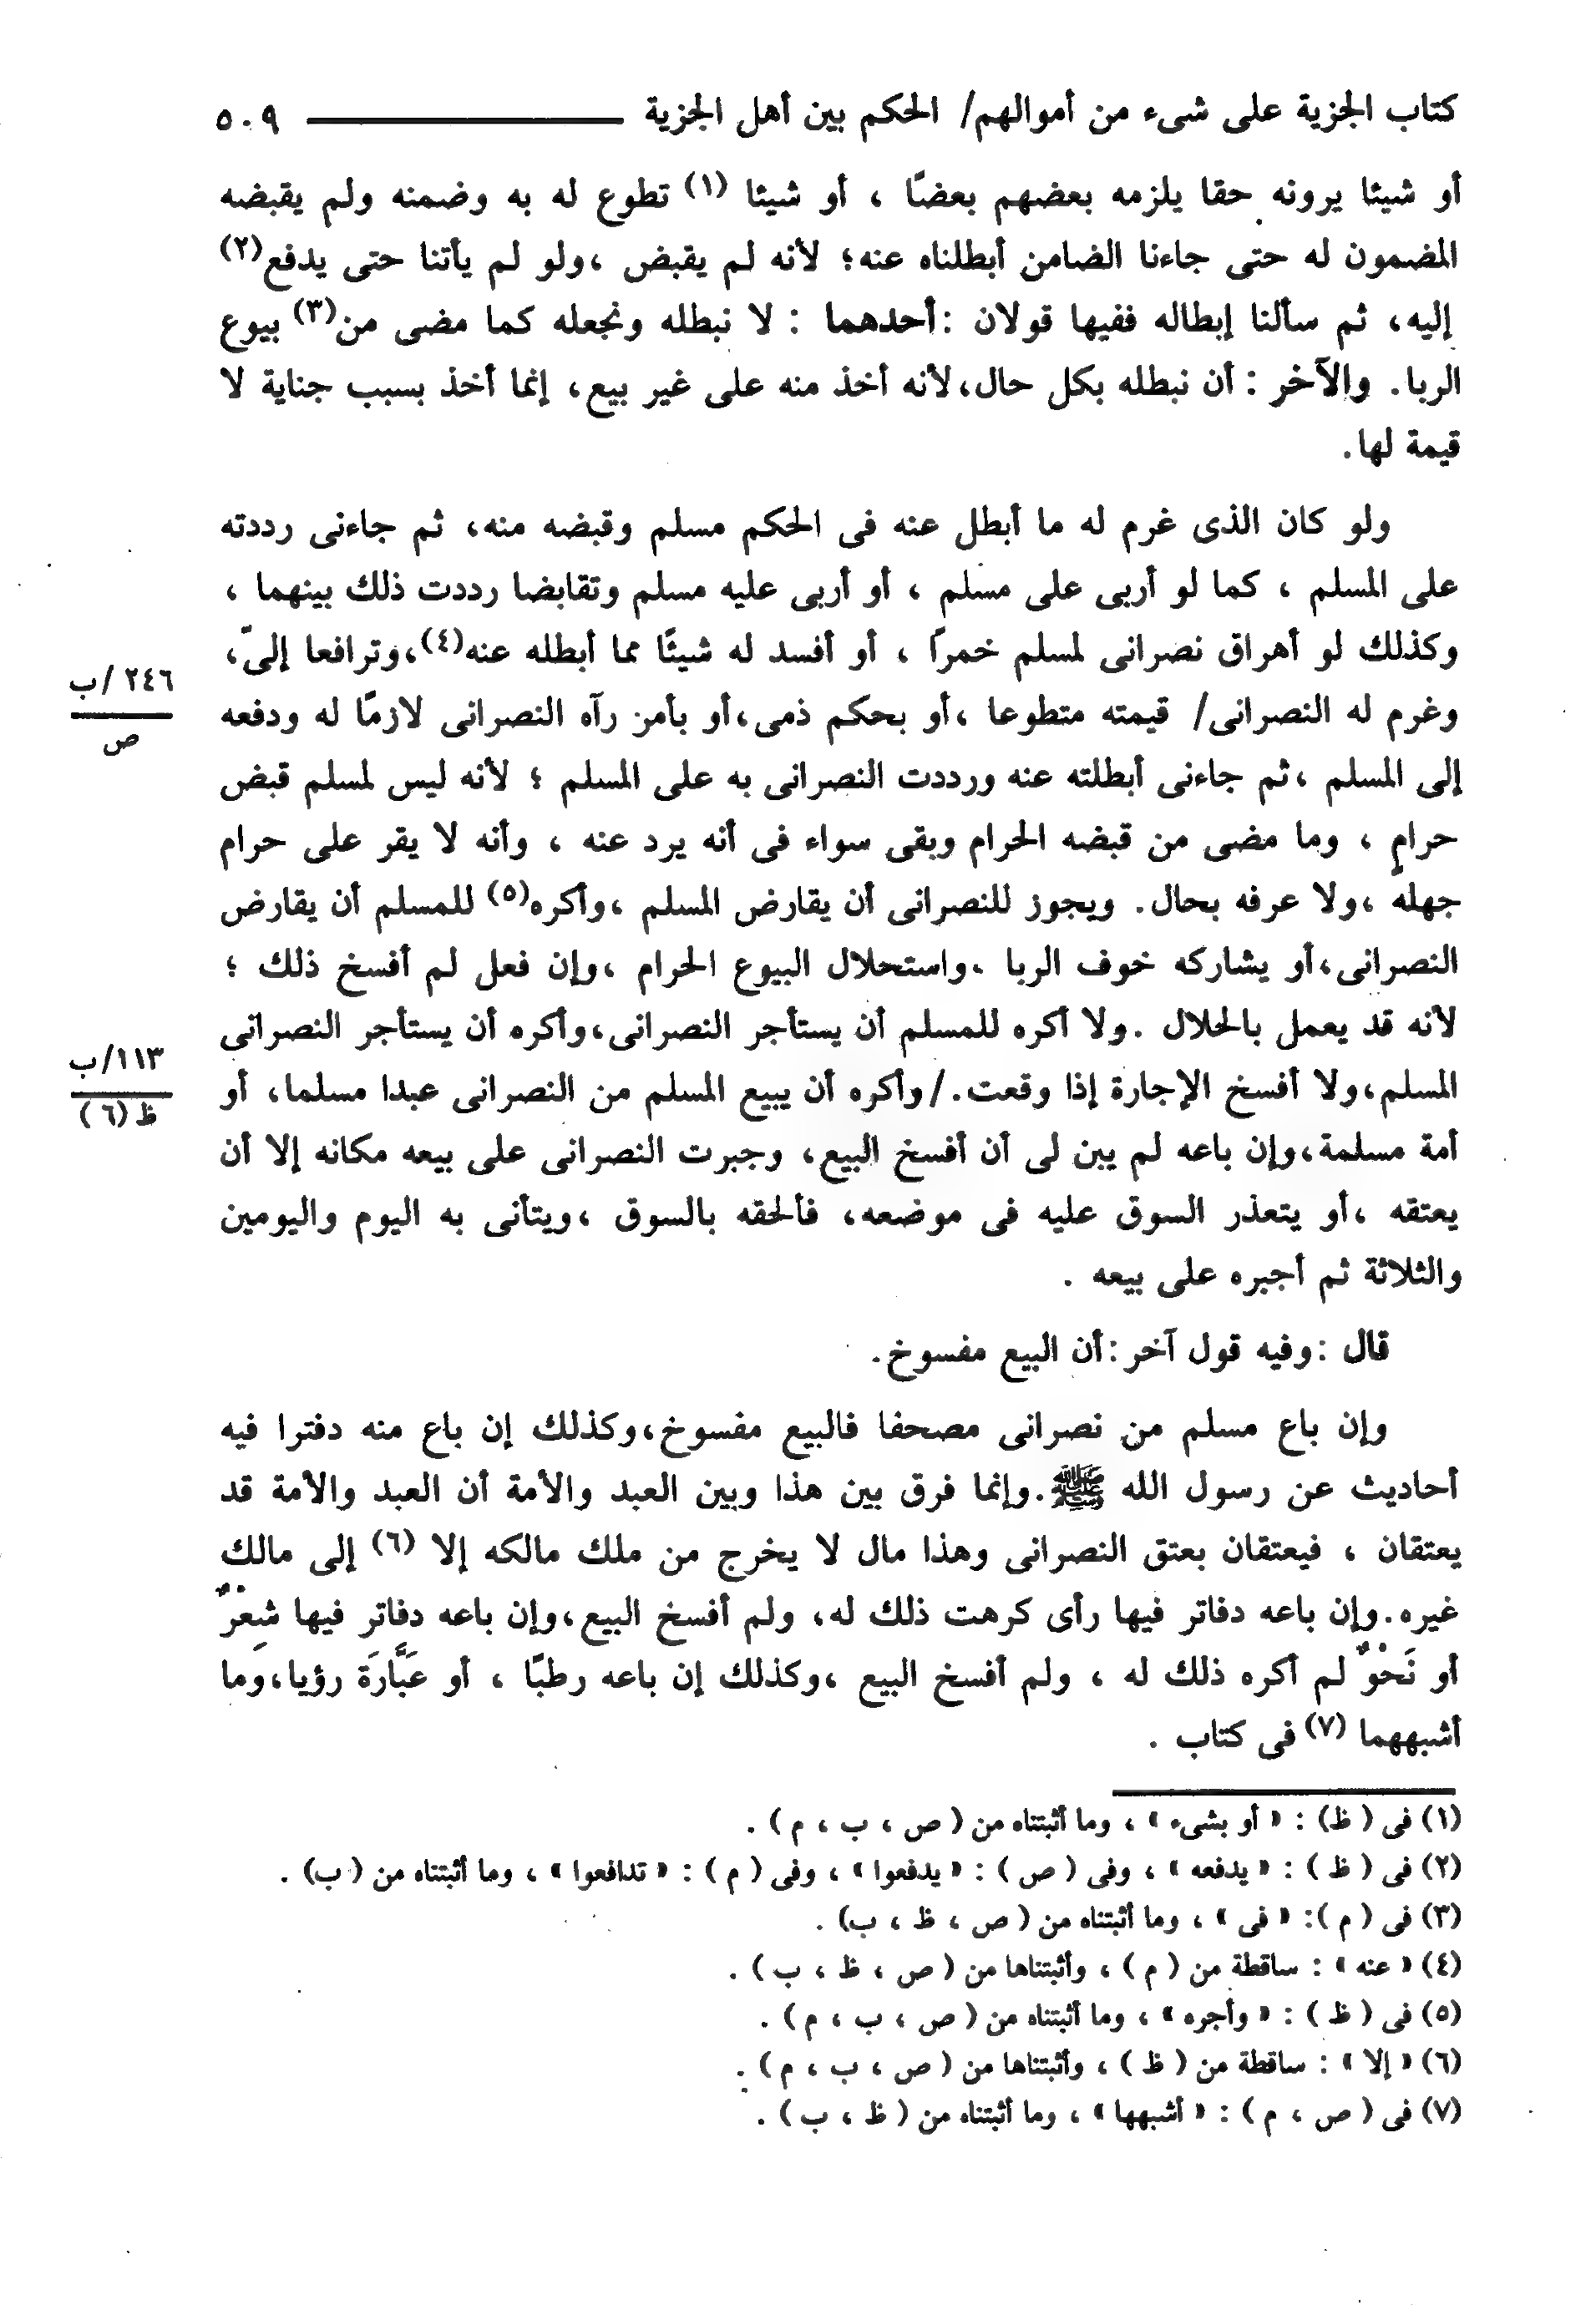 كتاب الجزية على شىء من أموالهم/ الحكم بين أهل الجزية ٥٠٩
أو شيئا يرونه حقا يلزمه بعضهم بعضًا ، أو شيئا (١) تطوع له به وضمنه ولم يقبضه
المضمون له حتى جاءنا الضامن أبطلناه عنه؛ لأنه لم يقبض ،ولو لم يأتنا حتى يدفع(٢)
إليه، ثم سألنا إبطاله ففيها قولان :أحدهما : لا نبطله ونجعله كما مضى من(٣) بيوع
الربا. والآخر : أن نبطله بكل حال،لأنه أخذ منه على غير بيع، إنما أخذ بسبب جناية لا
قيمة لها.
ولو كان الذى غرم له ما أبطل عنه فى الحكم مسلم وقبضه منه، ثم جاءنى رددته
على المسلم ، كما لو أربى على مسلم ، أو أربى عليه مسلم وتقابضا رددت ذلك بينهما ،
وكذلك لو أهراق نصرانى لمسلم خمرًا ، أو أفسد له شيئًا مما أبطله عنه(٤)،وترافعا إلىّ،
٢٤٦ /ب
وغرم له النصرانى/ قيمته متطوعا ،أو بحكم ذمى،أو بأمر رآه النصرانى لازمًا له ودفعه
ص
إلى المسلم ،ثم جاءنى أبطلته عنه ورددت النصرانى به على المسلم ؛ لأنه ليس لمسلم قبض
حرامٍ ، وما مضى من قبضه الحرام وبقى سواء فى أنه يرد عنه ، وأنه لا يقر على حرام
جهله ،ولا عرفه بحال. ويجوز للنصرانى أن يقارض المسلم ،وأكره(٥) للمسلم أن يقارض
النصرانى،أو يشاركه خوف الربا ،واستحلال البيوع الحرام ،وإن فعل لم أفسخ ذلك ؛
لأنه قد يعمل بالحلال .ولا أكره للمسلم أن يستأجر النصرانى،وأكره أن يستأجر النصرانى
١١٣/ب
المسلم،ولا أفسخ الإجارة إذا وقعت./وأكره أن يبيع المسلم من النصرانى عبدا مسلما، أو
ظ (٦)
أمة مسلمة،وإن باعه لم يبن لى أن أفسخ البيع، وجبرت النصرانى على بيعه مكانه إلا أن
يعتقه ،أو يتعذر السوق عليه فى موضعه، فألحقه بالسوق ،ويتأنى به اليوم واليومين
والثلاثة ثم أجبره على بيعه .
قال :وفيه قول آخر:أن البيع مفسوخ.
وإن باع مسلم من نصرانى مصحفا فالبيع مفسوخ،وكذلك إن باع منه دفترا فيه
أحاديث عن رسول الله ﷺ.وإنما فرق بين هذا وبين العبد والأمة أن العبد والأمة قد
يعتقان ، فيعتقان بعتق النصرانى وهذا مال لا يخرج من ملك مالكه إلا (٦) إلى مالك
غيره.وإن باعه دفاتر فيها رأى كرهت ذلك له، ولم أفسخ البيع،وإن باعه دفاتر فيها شِعْرٌ
أو نَحْوٌ لم أكره ذلك له ، ولم أفسخ البيع ،وكذلك إن باعه رطبًا ، أو عَبَّارَة رؤيا،وَما
أشبههما (٧) فى كتاب .
(١) فى ( ظ) : « أو بشىء » ، وما أثبتناه من ( ص ، ب ، م ) .
(٢) فى ( ظ ) : « يدفعه » ، وفى ( ص ) : « يدفعوا » ، وفى ( م ) : « تدافعوا » ، وما أثبتناه من ( ب) .
(٣) فى ( م ): « فى » ، وما أثبتناه من ( ص ، ظ ، ب) .
(٤) « عنه » : ساقطة من ( م ) ، وأثبتناها من ( ص ، ظ ، ب ) .
(٥) فى ( ظ ) : « وأجره » ، وما أثبتناه من ( ص ، ب ، م ) .
(٦) « إلا » : ساقطة من ( ظ ) ، وأثبتناها من ( ص ، ب ، م ) .
(٧) فى ( ص ، م ) : « أشبهها » ، وما أثبتناه من ( ظ ، ب ) .